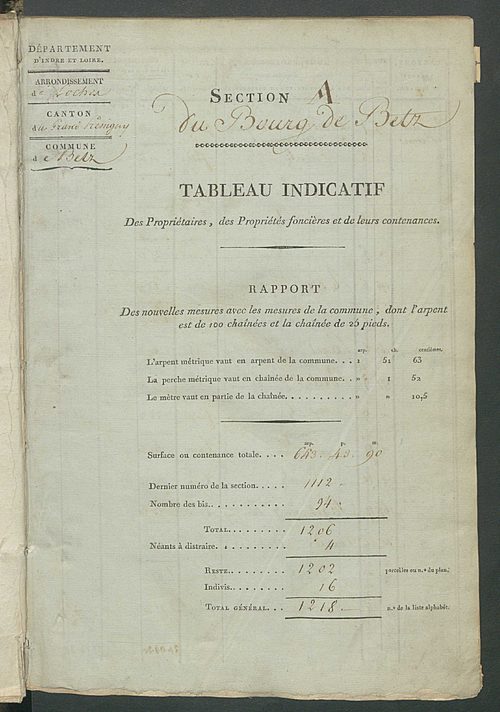 DÉPARTEMENT
D'INDRE ET LOIRE.
ARRONDISSEMENT
de Loches
CANTON
du Grand Pressigny
COMMUNE
de Betz
SECTION A
du Bourg de Betz
TABLEAU INDICATIF
Des Propriétaires, des Propriétés foncières et de leurs contenances.
RAPPORT
Des nouvelles mesures avec les mesures de la commune, dont l'arpent
est de 100 chaînées et la chaînée de 25 pieds.
arp. ch. centièmes.
L'arpent métrique vaut en arpent de la commune... 1 51 63
La perche métrique vaut en chaînée de la commune.. » 1 52
Le mètre vaut en partie de la chaînée.......... » » 10,5
arp. p. m.
Surface ou contenance totale.... 643. 43. 90
Dernier numéro de la section..... 1112
Nombre des bis............ 94
TOTAL......... 1206
Néants à distraire.......... 4
RESTE.......... 1202 parcelles ou n.os du plan.
Indivis......... 16
TOTAL GÉNÉRAL... 1218 n.os de la liste alphabét.